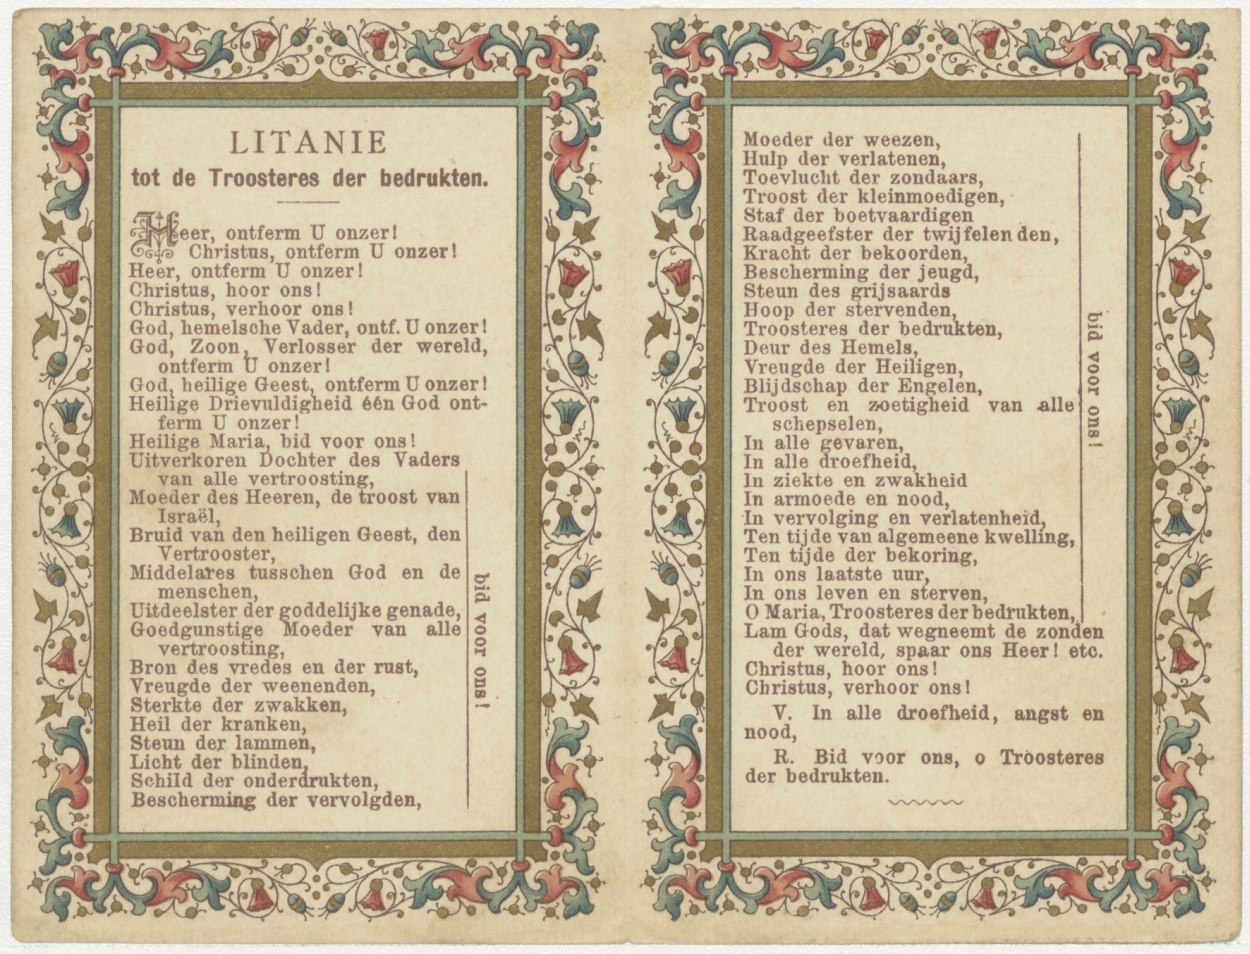 LITANIE
tot de Troosteres der bedrukten.
Heer, ontferm U onzer!
Christus, ontferm U onzer!
Heer, ontferm U onzer!
Christus, hoor ons!
Christus, verhoor ons!
God, hemelsche Vader, ontf. U onzer!
God, Zoon, Verlosser der wereld,
ontferm U onzer!
God, heilige Geest, ontferm U onzer!
Heilige Drievuldigheid één God ont-
ferm U onzer!
Heilige Maria, bid voor ons!
Uitverkoren Dochter des Vaders
van alle vertroosting,
Moeder des Heeren, de troost van
Israël,
Bruid van den heiligen Geest, den
Vertrooster,
Middelares tusschen God en de
menschen,
Uitdeelster der goddelijke genade,
Goedgunstige Moeder van alle
vertroosting,
Bron des vredes en der rust,
Vreugde der weenenden,
Sterkte der zwakken,
Heil der kranken,
Steun der lammen,
Licht der blinden,
Schild der onderdrukten,
Bescherming der vervolgden,
bid voor ons!
Moeder der weezen,
Hulp der verlatenen,
Toevlucht der zondaars,
Troost der kleinmoedigen,
Staf der boetvaardigen
Raadgeefster der twijfelenden,
Kracht der bekoorden,
Bescherming der jeugd,
Steun des grijsaards
Hoop der stervenden,
Troosteres der bedrukten,
Deur des Hemels,
Vreugde der Heiligen,
Blijdschap der Engelen,
Troost en zoetigheid van alle
schepselen,
In alle gevaren,
In alle droefheid,
In ziekte en zwakheid
In armoede en nood,
In vervolging en verlatenheid,
Ten tijde van algemeene kwelling,
Ten tijde der bekoring,
In ons laatste uur,
In ons leven en sterven,
O Maria, Troosteres der bedrukten,
bid voor ons!
Lam Gods, dat wegneemt de zonden
der wereld, spaar ons Heer! etc.
Christus, hoor ons!
Christus, verhoor ons!
V. In alle droefheid, angst en
nood,
R. Bid voor ons, o Troosteres
der bedrukten.